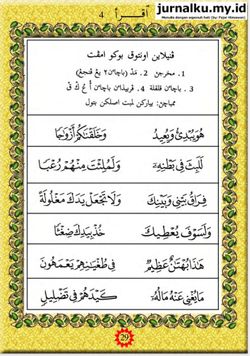 jurnalku.my.id
Menulis dengan sepenuh hati (by: Fajar Himawan)
اقرأ 4
قنيلاين اونتوق بوكو امڤت
١. مخرجڽ ٢. مد (باچاءن ٢ يڠ ڤنجڠ)
٣. باچاءن قلقلة ٤. ڤربيذاءن باچاءن أ ع ك ق
ممباچڽ: بيارکن لمبت اصلکن بتول
هُوَيُبْدِئُ وَيُعِيدُ
وَخَلَقْنَاكُمْ أَزْوَاجًا
لَلَبِثَ فِي بَطْنِهِ
وَلَمُلِئْتَ مِنْهُمْ رُعْبًا
فِرَاقُ بَيْنِي وَبَيْنِكَ
وَلَا تَجْعَلْ يَدَكَ مَغْلُولَةً
وَلَسَوْفَ يُعْطِيكَ
خُذْ بِيَدِكَ ضِغْثًا
هَذَا بُهْتَانٌ عَظِيمٌ
فِي طُغْيَانِهِمْ يَعْمَهُونَ
مَا يُغْنِي عَنْهُ مَالُهُ
كَيْدَهُمْ فِي تَضْلِيلٍ
29